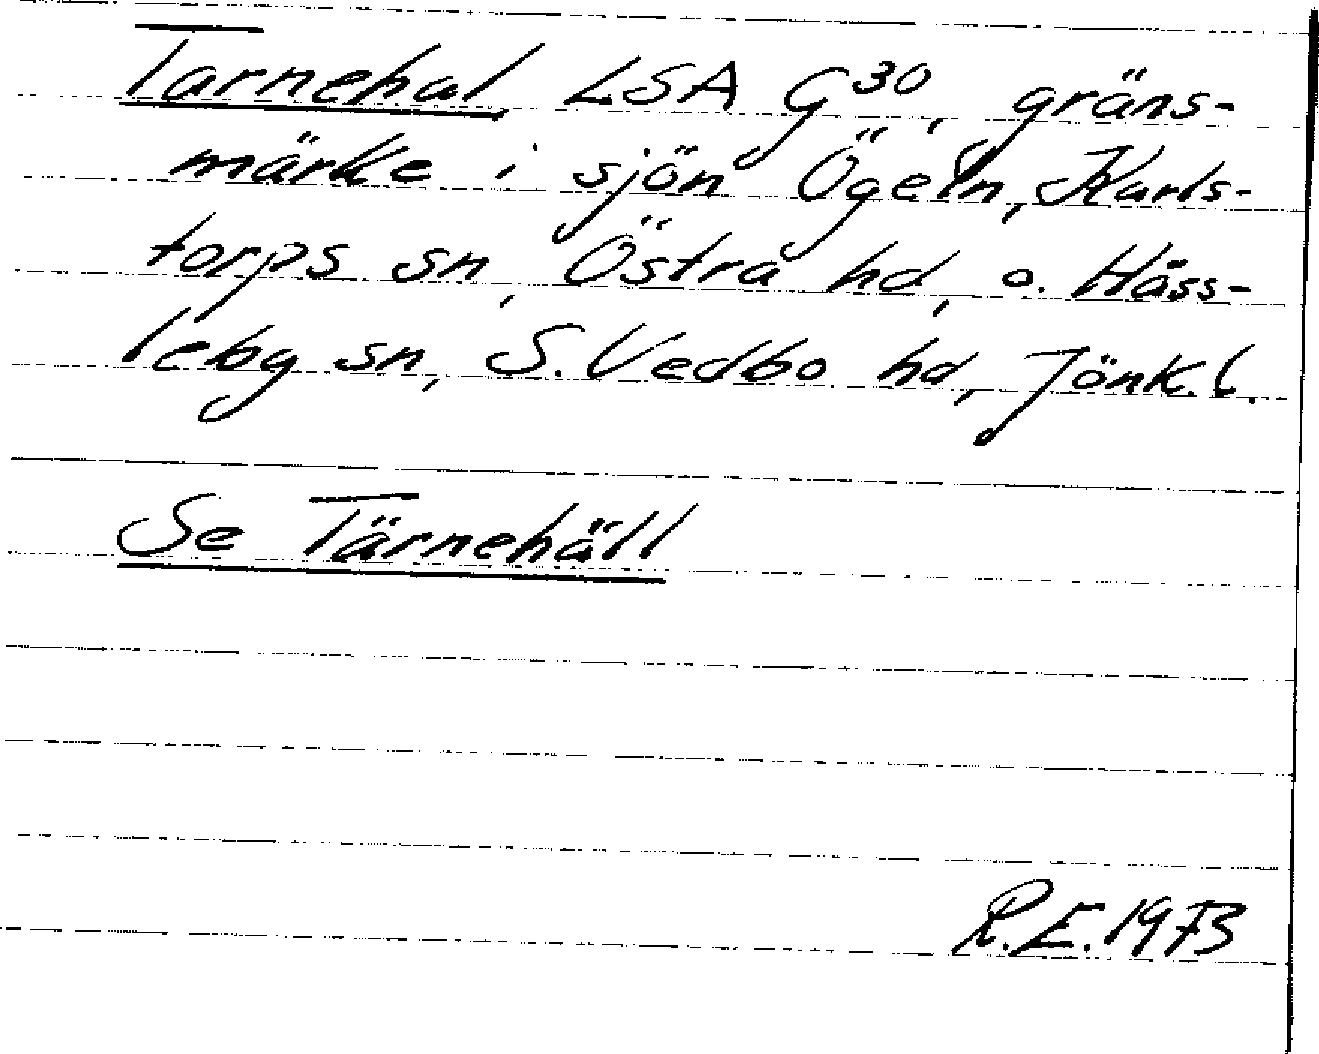 Tarnehal LSA G30, gräns-
märke i sjön Ögeln, Karls-
torps sn, Östra hd, o. Häss-
leby sn, S. Vedbo hd, Jönk. l.
Se Tärnehäll
R.E. 1973